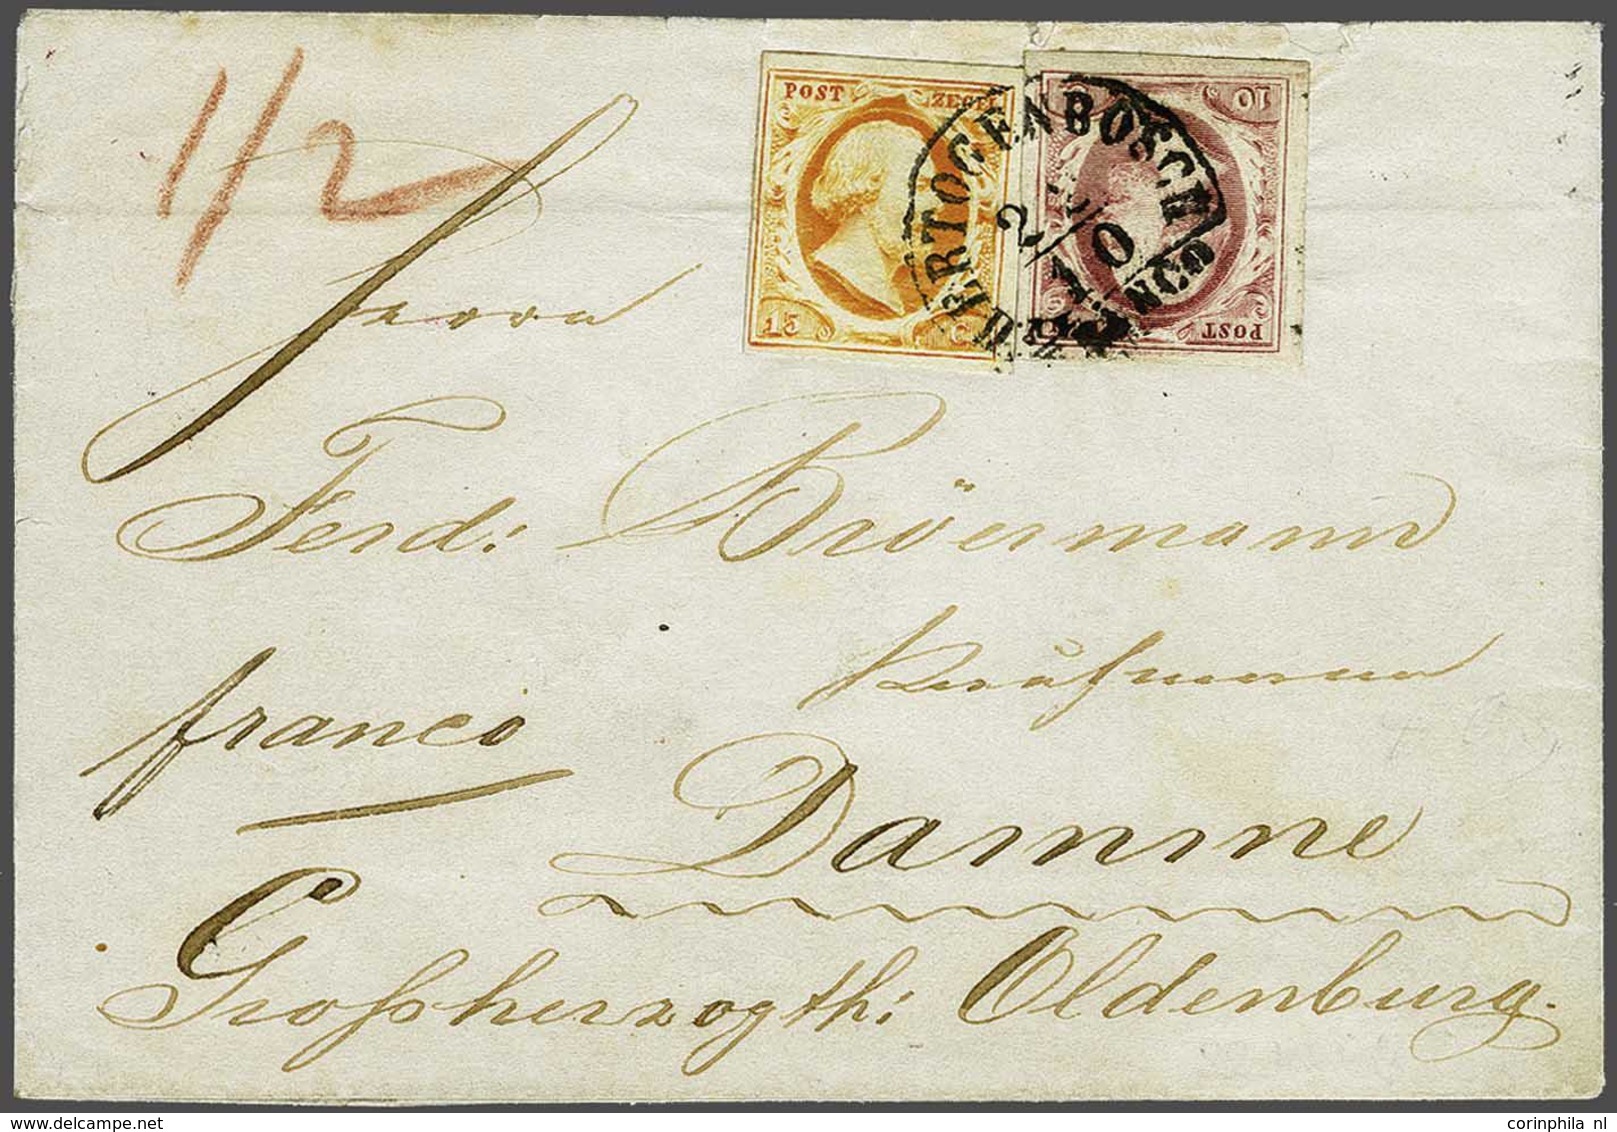 1/2
POST ZEGEL
15 C
10
POST
HERTOGENBOSCH
2/10
FRANCO
Herrn
Ferd: Bröermann
Kaufmann
franco
Damme
Großherzogth: Oldenburg.
corinphila nl